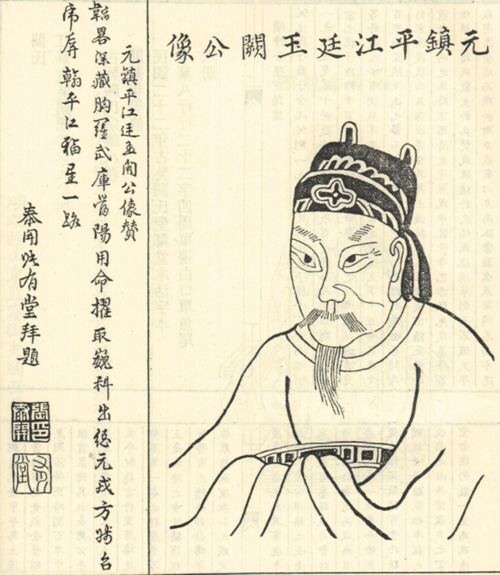 元鎮平江廷玉闕公像
元鎮平江廷玉闕公像贊
韜畧深藏胸羅武庫當陽用命擢取巍科出總元戎方台
席屏翰平江猶星一路
泰開有堂拜題